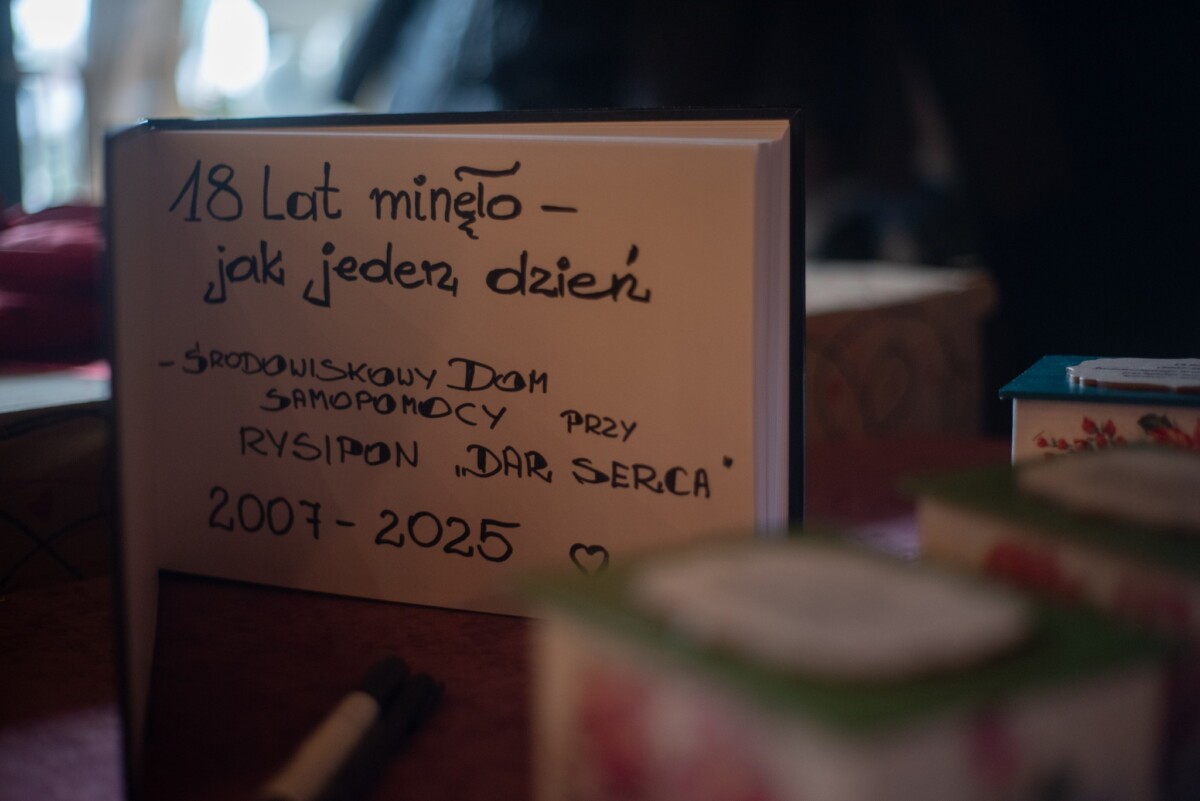 18 Lat minęło -
jak jeden dzień
- ŚRODOWISKOWY DOM
SAMOPOMOCY PRZY
RYSIPON „DAR SERCA"
2007 - 2025 ♡